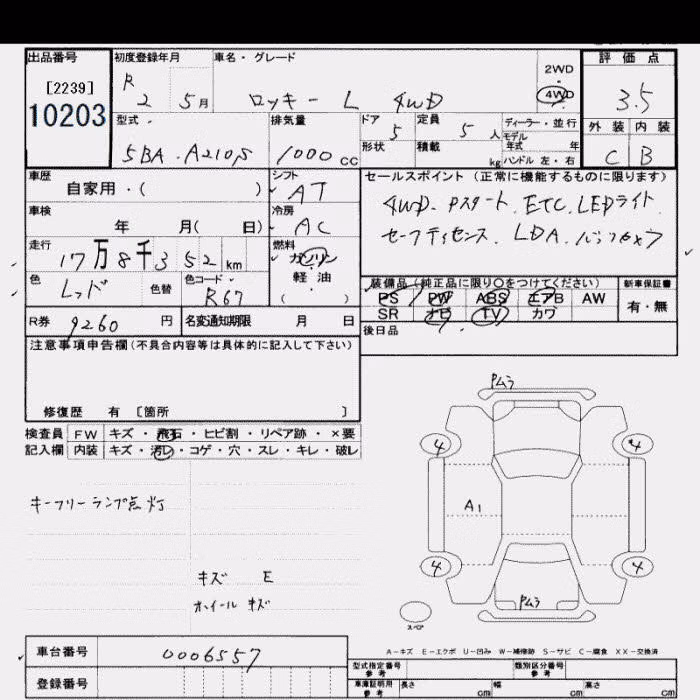 出品番号 初度登録年月 車名・グレード 評価点
[2239] R 2WD
10203 2 5月 ロッキー L 4WD 4WD 3.5
型式 排気量 ドア 定員 ディーラー・並行 外装 内装
5 5人 モデル年式 年式
5BA-A210S 1000cc 形状 積載 kg ハンドル 左・右 C B
車歴 シフト セールスポイント (正常に機能するものに限ります)
自家用・( ) AT 4WD. Pスタート. ETC. LEDライト
車検 冷房
年 月( 日) AC LDA.
走行 燃料
17万8千352km ガソリン
色 レッド 色替 色コード R67 軽油 ( )
装備品 (純正品に限り○をつけてください) 新車保証書
PS PW ABS エアB AW 有・無
SR ナビ TV カワ
R券 9260円 名変通知期限 月 日 後日品
注意事項申告欄(不具合内容等は具体的に記入して下さい)
修復歴 有 [箇所 ]
検査員 FW キズ・飛石・ヒビ割・リペア跡・×要
記入欄 内装 キズ・汚レ・コゲ・穴・スレ・キレ・破レ
Pムラ
4 4
キーフリーランプ点灯 A1
4 4
キズ E
ホイールキズ Pムラ
スペア
A-キズ E-エクボ U-凹み W-補修跡 S-サビ C-腐食 XX-交換済
車台番号 0006557 型式指定番号 参考 類別区分番号 参考
登録番号 車庫証明用 参考 長さ cm 幅 cm 高さ cm